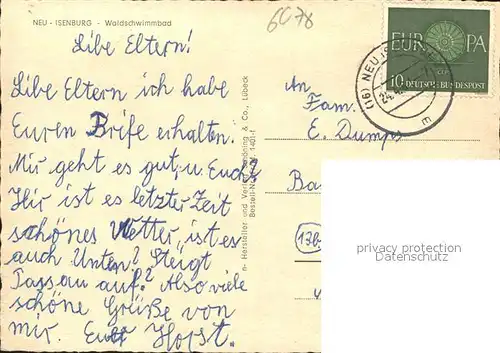 NEU - ISENBURG - Waldschwimmbad
6078
Libe Eltern!
Libe Eltern ich habe
Euren Brife erhalten.
Mir geht es gut, u. Euch?
Hir ist es letzter Zeit
schönes Wetter, ist es
auch Unten? Steigt
auf? Also viele
schöne Grüße von
mir. Euer Horst.
Hersteller und Verlag: Schöning & Co., Lübeck
Bestell-Nr.
EUROPA
10 DEUTSCHE BUNDESPOST
(16) NEU ISE
An
Fam.
E. Dumps
Ba
13b
privacy protection
Datenschutz